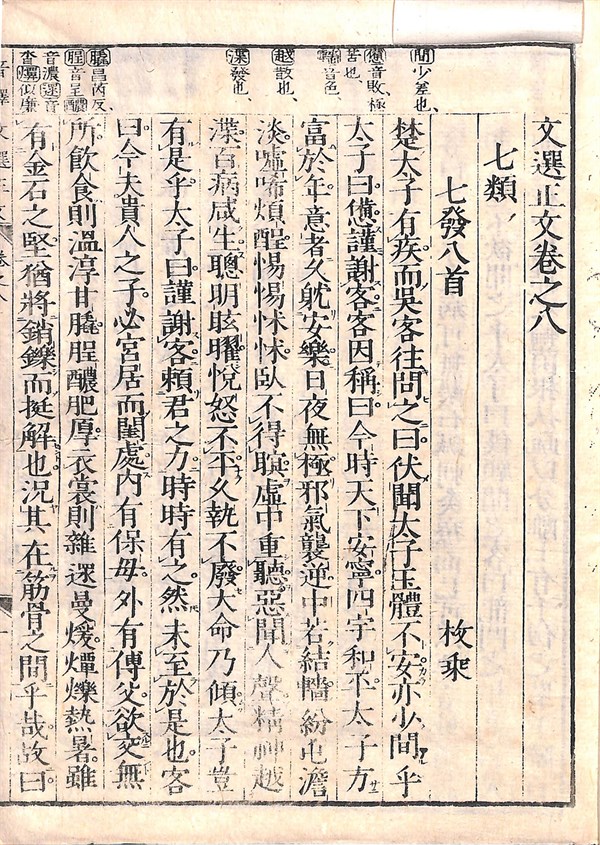 文選正文卷之八
七類
七發八首　枚乘
楚太子有疾而吳客往問之曰伏聞太子玉體不安亦少間乎
太子曰憊謹謝客客因稱曰今時天下安寧四宇和平太子方
富於年意者久躭安樂日夜無極邪氣襲逆中若結轖紛屯澹
淡嘘唏煩酲惕惕怵怵臥不得瞑虛中重聽惡聞人聲精神越
渫百病咸生聰明眩曜悅怒不平久執不廢大命乃傾太子豈
有是乎太子曰謹謝客賴君之力時時有之然未至於是也客
曰今夫貴人之子必宮居而閨處內有保母外有傅父欲交無
所飲食則溫淳甘膬脭醲肥厚衣裳則雜遝曼煖燂爍熱暑雖
有金石之堅猶將銷鑠而挺解也況其在筋骨之間乎哉故曰
間少差也、
憊音敗極
苦也、
轖音色、
越散也、
渫發也、
膬昌芮反、
脭音呈醲
音濃遝音
沓燂似廉